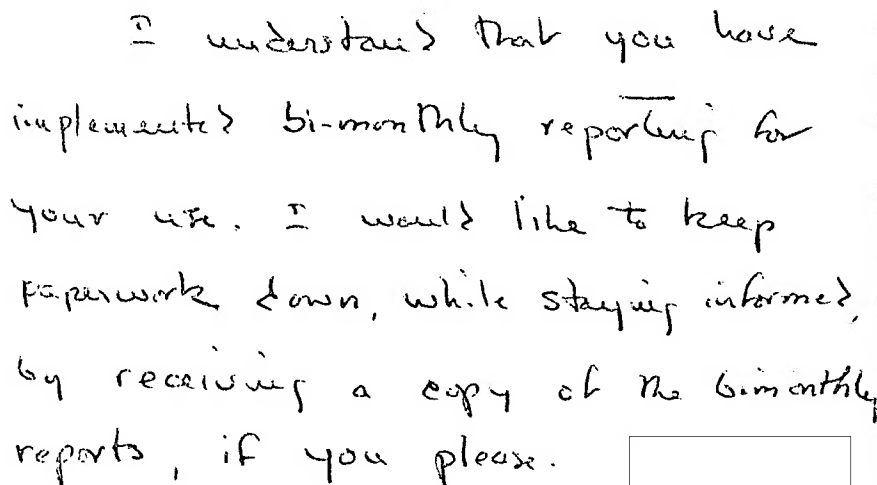 I understand that you have
implemented bi-monthly reporting for
your use. I would like to keep
paperwork down, while staying informed,
by receiving a copy of the bimonthly
reports, if you please.